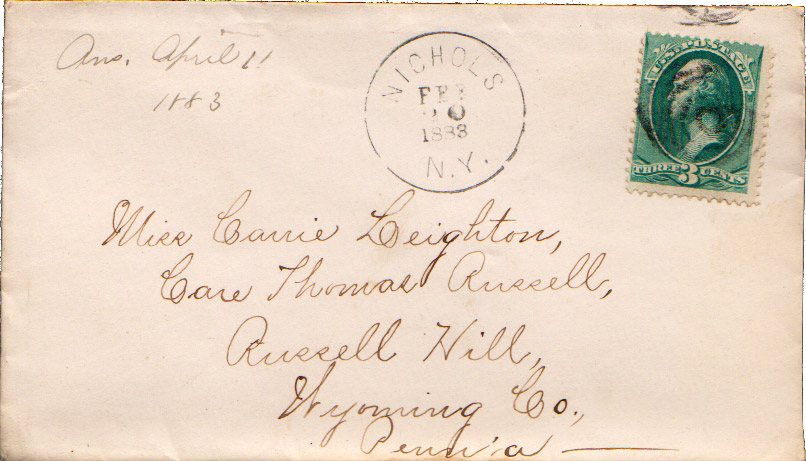 Ans. April 11
1883
NICHOLS
FEB
20
1883
N.Y.
U.S. POSTAGE
THREE 3 CENTS
Miss Carrie Leighton,
Care Thomas Russell,
Russell Hill,
Wyoming Co.,
Penn'a